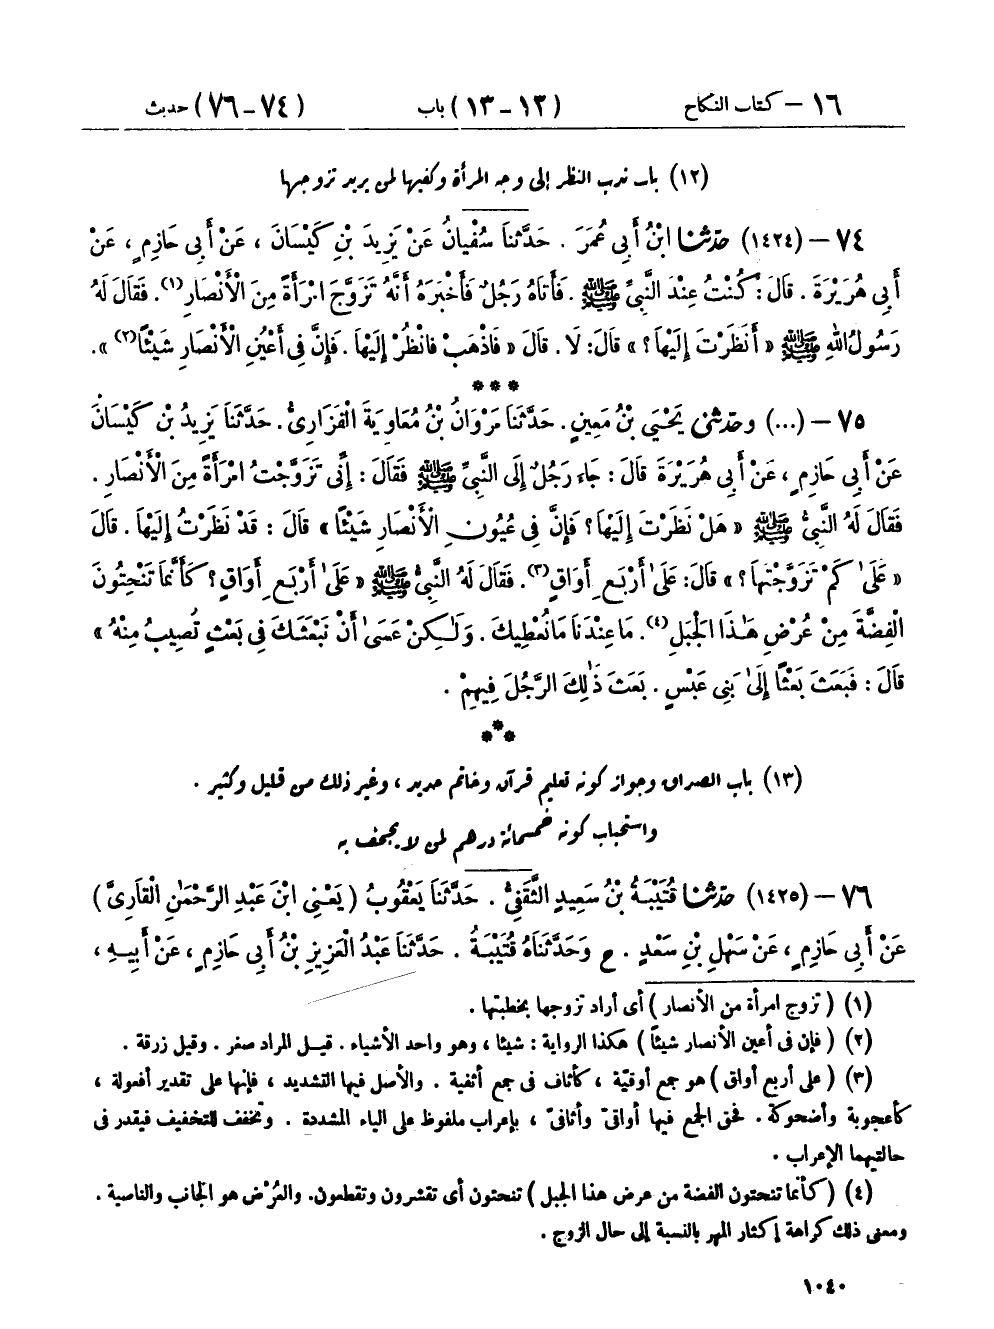 ١٦ – كتاب النكاح (١٢ – ١٣) باب (٧٤ – ٧٦) حديث
(١٢) باب ندب النظر إلى وجه المرأة وكفيها لمن يريد تزوجها
٧٤ – (١٤٢٤) حَدَّثَنَا ابْنُ أَبِي عُمَرَ . حَدَّثَنَا سُفْيَانُ عَنْ يَزِيدَ بْنِ كَيْسَانَ ، عَنْ أَبِي حَازِمٍ ، عَنْ
أَبِي هُرَيْرَةَ . قَالَ : كُنْتُ عِنْدَ النَّبِيِّ ﷺ . فَأَتَاهُ رَجُلٌ فَأَخْبَرَهُ أَنَّهُ تَزَوَّجَ امْرَأَةً مِنَ الْأَنْصَارِ (١) . فَقَالَ لَهُ
رَسُولُ اللهِ ﷺ « أَنَظَرْتَ إِلَيْهَا ؟ » قَالَ : لَا . قَالَ « فَاذْهَبْ فَانْظُرْ إِلَيْهَا . فَإِنَّ فِي أَعْيُنِ الْأَنْصَارِ شَيْئًا (٢) » .
***
٧٥ – (...) وحَدَّثَنِي يَحْيَى بْنُ مَعِينٍ . حَدَّثَنَا مَرْوَانُ بْنُ مُعَاوِيَةَ الْفَزَارِيُّ . حَدَّثَنَا يَزِيدُ بْنُ كَيْسَانَ
عَنْ أَبِي حَازِمٍ ، عَنْ أَبِي هُرَيْرَةَ قَالَ : جَاءَ رَجُلٌ إِلَى النَّبِيِّ ﷺ فَقَالَ : إِنِّي تَزَوَّجْتُ امْرَأَةً مِنَ الْأَنْصَارِ .
فَقَالَ لَهُ النَّبِيُّ ﷺ « هَلْ نَظَرْتَ إِلَيْهَا ؟ فَإِنَّ فِي عُيُونِ الْأَنْصَارِ شَيْئًا » قَالَ : قَدْ نَظَرْتُ إِلَيْهَا . قَالَ
« عَلَى كَمْ تَزَوَّجْتَهَا ؟ » قَالَ : عَلَى أَرْبَعِ أَوَاقٍ (٣) . فَقَالَ لَهُ النَّبِيُّ ﷺ « عَلَى أَرْبَعِ أَوَاقٍ ؟ كَأَنَّمَا تَنْحِتُونَ
الْفِضَّةَ مِنْ عُرْضِ هَٰذَا الْجَبَلِ (٤) . مَا عِنْدَنَا مَا نُعْطِيكَ . وَلَٰكِنْ عَسَى أَنْ نَبْعَثَكَ فِي بَعْثٍ تُصِيبُ مِنْهُ »
قَالَ : فَبَعَثَ بَعْثًا إِلَى بَنِي عَبْسٍ . بَعَثَ ذَٰلِكَ الرَّجُلَ فِيهِمْ .
***
(١٣) باب الصداق وجواز كونه تعليم قرآن وخاتم حديد ، وغير ذلك من قليل وكثير .
واستحباب كونه خمسمائة درهم لمن لا يجحف به
٧٦ – (١٤٢٥) حَدَّثَنَا قُتَيْبَةُ بْنُ سَعِيدٍ الثَّقَفِيُّ . حَدَّثَنَا يَعْقُوبُ ( يَعْنِي ابْنَ عَبْدِ الرَّحْمَٰنِ الْقَارِيَّ )
عَنْ أَبِي حَازِمٍ ، عَنْ سَهْلِ بْنِ سَعْدٍ . ح وَحَدَّثَنَاهُ قُتَيْبَةُ . حَدَّثَنَا عَبْدُ الْعَزِيزِ بْنُ أَبِي حَازِمٍ ، عَنْ أَبِيهِ ،
(١) ( تزوج امرأة من الأنصار ) أى أراد تزوجها بخطبتها .
(٢) ( فإن فى أعين الأنصار شيئاً ) هكذا الرواية : شيئا ، وهو واحد الأشياء . قيل المراد صغر . وقيل زرقة .
(٣) ( على أربع أواق ) هو جمع أوقية ، كأثاف فى جمع أثفية . والأصل فيها التشديد ، فإنها على تقدير أفعولة ،
كأعجوبة وأضحوكة . فحق الجمع فيها أواقىّ وأثافىّ ، بإعراب ملفوظ على الياء المشددة . وتخفف للتخفيف فيقدر فى
حالتيهما الإعراب .
(٤) ( كأنما تنحتون الفضة من عرض هذا الجبل ) تنحتون أى تقشرون وتقطعون . والعُرْض هو الجانب والناصية .
ومعنى ذلك كراهة إكثار المهر بالنسبة إلى حال الزوج .
١٠٤٠